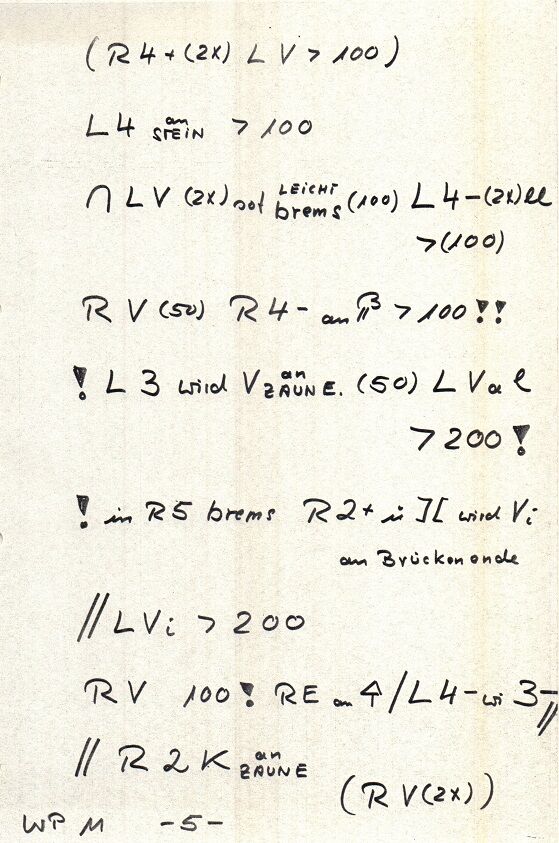 (R4+(2x) LV > 100)
L4 an STEIN > 100
∩ LV (2x) sof LEICHT brems (100) L4-(2x)ll
>(100)
RV (50) R4- an > 100!!
! L3 wird V an ZÄUNE. (50) LV al
> 200!
! in R5 brems R2+ in ][ wird Vi
an Brückenende
// LVi > 200
RV 100! RE an / L4- wi 3-//
// R2K an ZÄUNE
(RV(2x))
WP M -5-